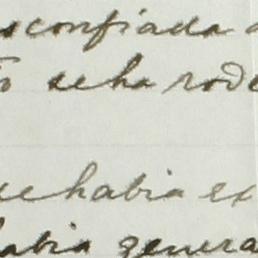 sconfiada
se ha rode
se habia ex
habia genera